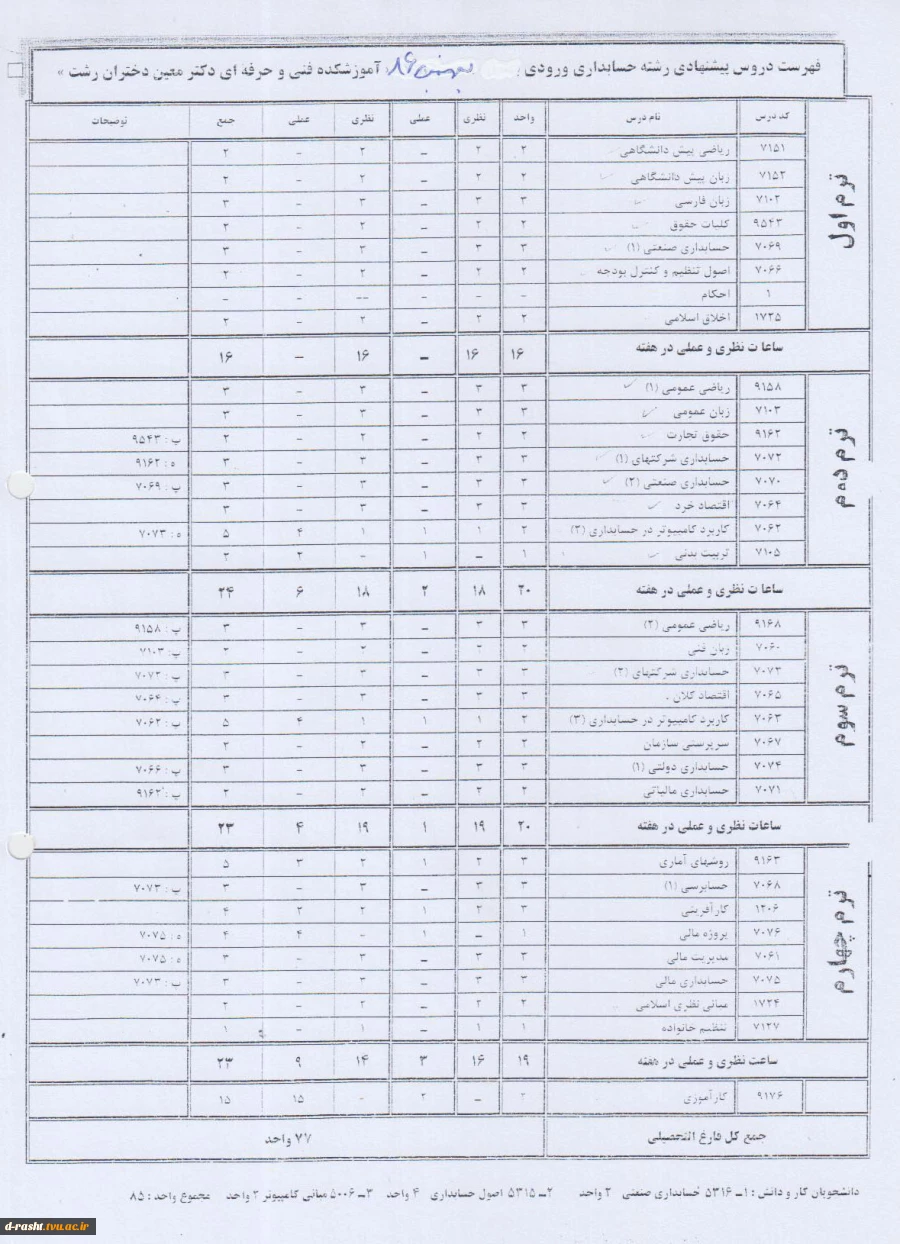 فهرست دروس پیشنهادی رشته حسابداری ورودی بهمن ۸۶ آموزشکده فنی و حرفه ای دکتر معین دختران رشت »
کد درس نام درس واحد نظری عملی نظری عملی جمع توضیحات
ترم اول
۷۱۵۱ ریاضی پیش دانشگاهی ۲ ۲ – ۲ – ۲
۷۱۵۲ زبان پیش دانشگاهی ۲ ۲ – ۲ – ۲
۷۱۰۲ زبان فارسی ۳ ۳ – ۳ – ۳
۹۵۴۳ کلیات حقوق ۲ ۲ – ۲ – ۲
۷۰۶۹ حسابداری صنعتی (۱) ۳ ۳ – ۳ – ۳
۷۰۶۶ اصول تنظیم و کنترل بودجه ۲ ۲ – ۲ – ۲
۱ احکام - - – -- – –
۱۷۲۵ اخلاق اسلامی ۲ ۲ – ۲ – ۲
ساعات نظری و عملی در هفته ۱۶ ۱۶ – ۱۶ – ۱۶
ترم دوم
۹۱۵۸ ریاضی عمومی (۱) ۳ ۳ – ۳ – ۳
۷۱۰۳ زبان عمومی ۳ ۳ – ۳ – ۳
۹۱۶۲ حقوق تجارت ۲ ۲ – ۲ – ۲ پ : ۹۵۴۳
۷۰۷۲ حسابداری شرکتهای (۱) ۳ ۳ – ۳ – ۳ ه : ۹۱۶۲
۷۰۷۰ حسابداری صنعتی (۲) ۳ ۳ – ۳ – ۳ پ : ۷۰۶۹
۷۰۶۴ اقتصاد خرد ۳ ۳ – ۳ – ۳
۷۰۶۲ کاربرد کامپیوتر در حسابداری (۲) ۲ ۱ ۱ ۱ ۴ ۵ ه : ۷۰۷۳
۷۱۰۵ تربیت بدنی ۱ – ۱ – ۲ ۲
ساعات نظری و عملی در هفته ۲۰ ۱۸ ۲ ۱۸ ۶ ۲۴
ترم سوم
۹۱۶۸ ریاضی عمومی (۲) ۳ ۳ – ۳ – ۳ پ : ۹۱۵۸
۷۰۶۰ زبان فنی ۲ ۲ – ۲ – ۲ پ : ۷۱۰۳
۷۰۷۳ حسابداری شرکتهای (۲) ۳ ۳ – ۳ – ۳ پ : ۷۰۷۲
۷۰۶۵ اقتصاد کلان ۳ ۳ – ۳ – ۳ پ : ۷۰۶۴
۷۰۶۳ کاربرد کامپیوتر در حسابداری (۳) ۲ ۱ ۱ ۱ ۴ ۵ پ : ۷۰۶۲
۷۰۶۷ سرپرستی سازمان ۲ ۲ – ۲ – ۲
۷۰۷۴ حسابداری دولتی (۱) ۳ ۳ – ۳ – ۳ پ : ۷۰۶۶
۷۰۷۱ حسابداری مالیاتی ۲ ۲ – ۲ – ۲ پ : ۹۱۶۲
ساعات نظری و عملی در هفته ۲۰ ۱۹ ۱ ۱۹ ۴ ۲۳
ترم چهارم
۹۱۶۳ روشهای آماری ۳ ۲ ۱ ۲ ۳ ۵
۷۰۶۸ حسابرسی (۱) ۳ ۳ – ۳ – ۳ پ : ۷۰۷۳
۱۲۰۶ کارآفرینی ۳ ۲ ۱ ۲ ۲ ۴
۷۰۷۶ پروژه مالی ۱ – ۱ - ۴ ۴ ه : ۷۰۷۵
۷۰۶۱ مدیریت مالی ۳ ۳ – ۳ – ۳ ه : ۷۰۷۵
۷۰۷۵ حسابداری مالی ۳ ۳ – ۳ – ۳ پ : ۷۰۷۳
۱۷۲۴ مبانی نظری اسلامی ۲ ۲ – ۲ – ۲
۷۱۲۷ تنظیم خانواده ۱ ۱ – ۱ – ۱
ساعت نظری و عملی در هفته ۱۹ ۱۶ ۳ ۱۴ ۹ ۲۳
۹۱۷۶ کارآموزی ۲ – ۲ - ۱۵ ۱۵
جمع کل فارغ التحصیلی ۷۷ واحد
دانشجویان کار و دانش : ۱ــ ۵۳۱۶ حسابداری صنعتی ۲ واحد ۲ــ ۵۳۱۵ اصول حسابداری ۴ واحد ۳ــ ۵۰۰۶ مبانی کامپیوتر ۲ واحد مجموع واحد : ۸۵
d-rasht.tvu.ac.ir